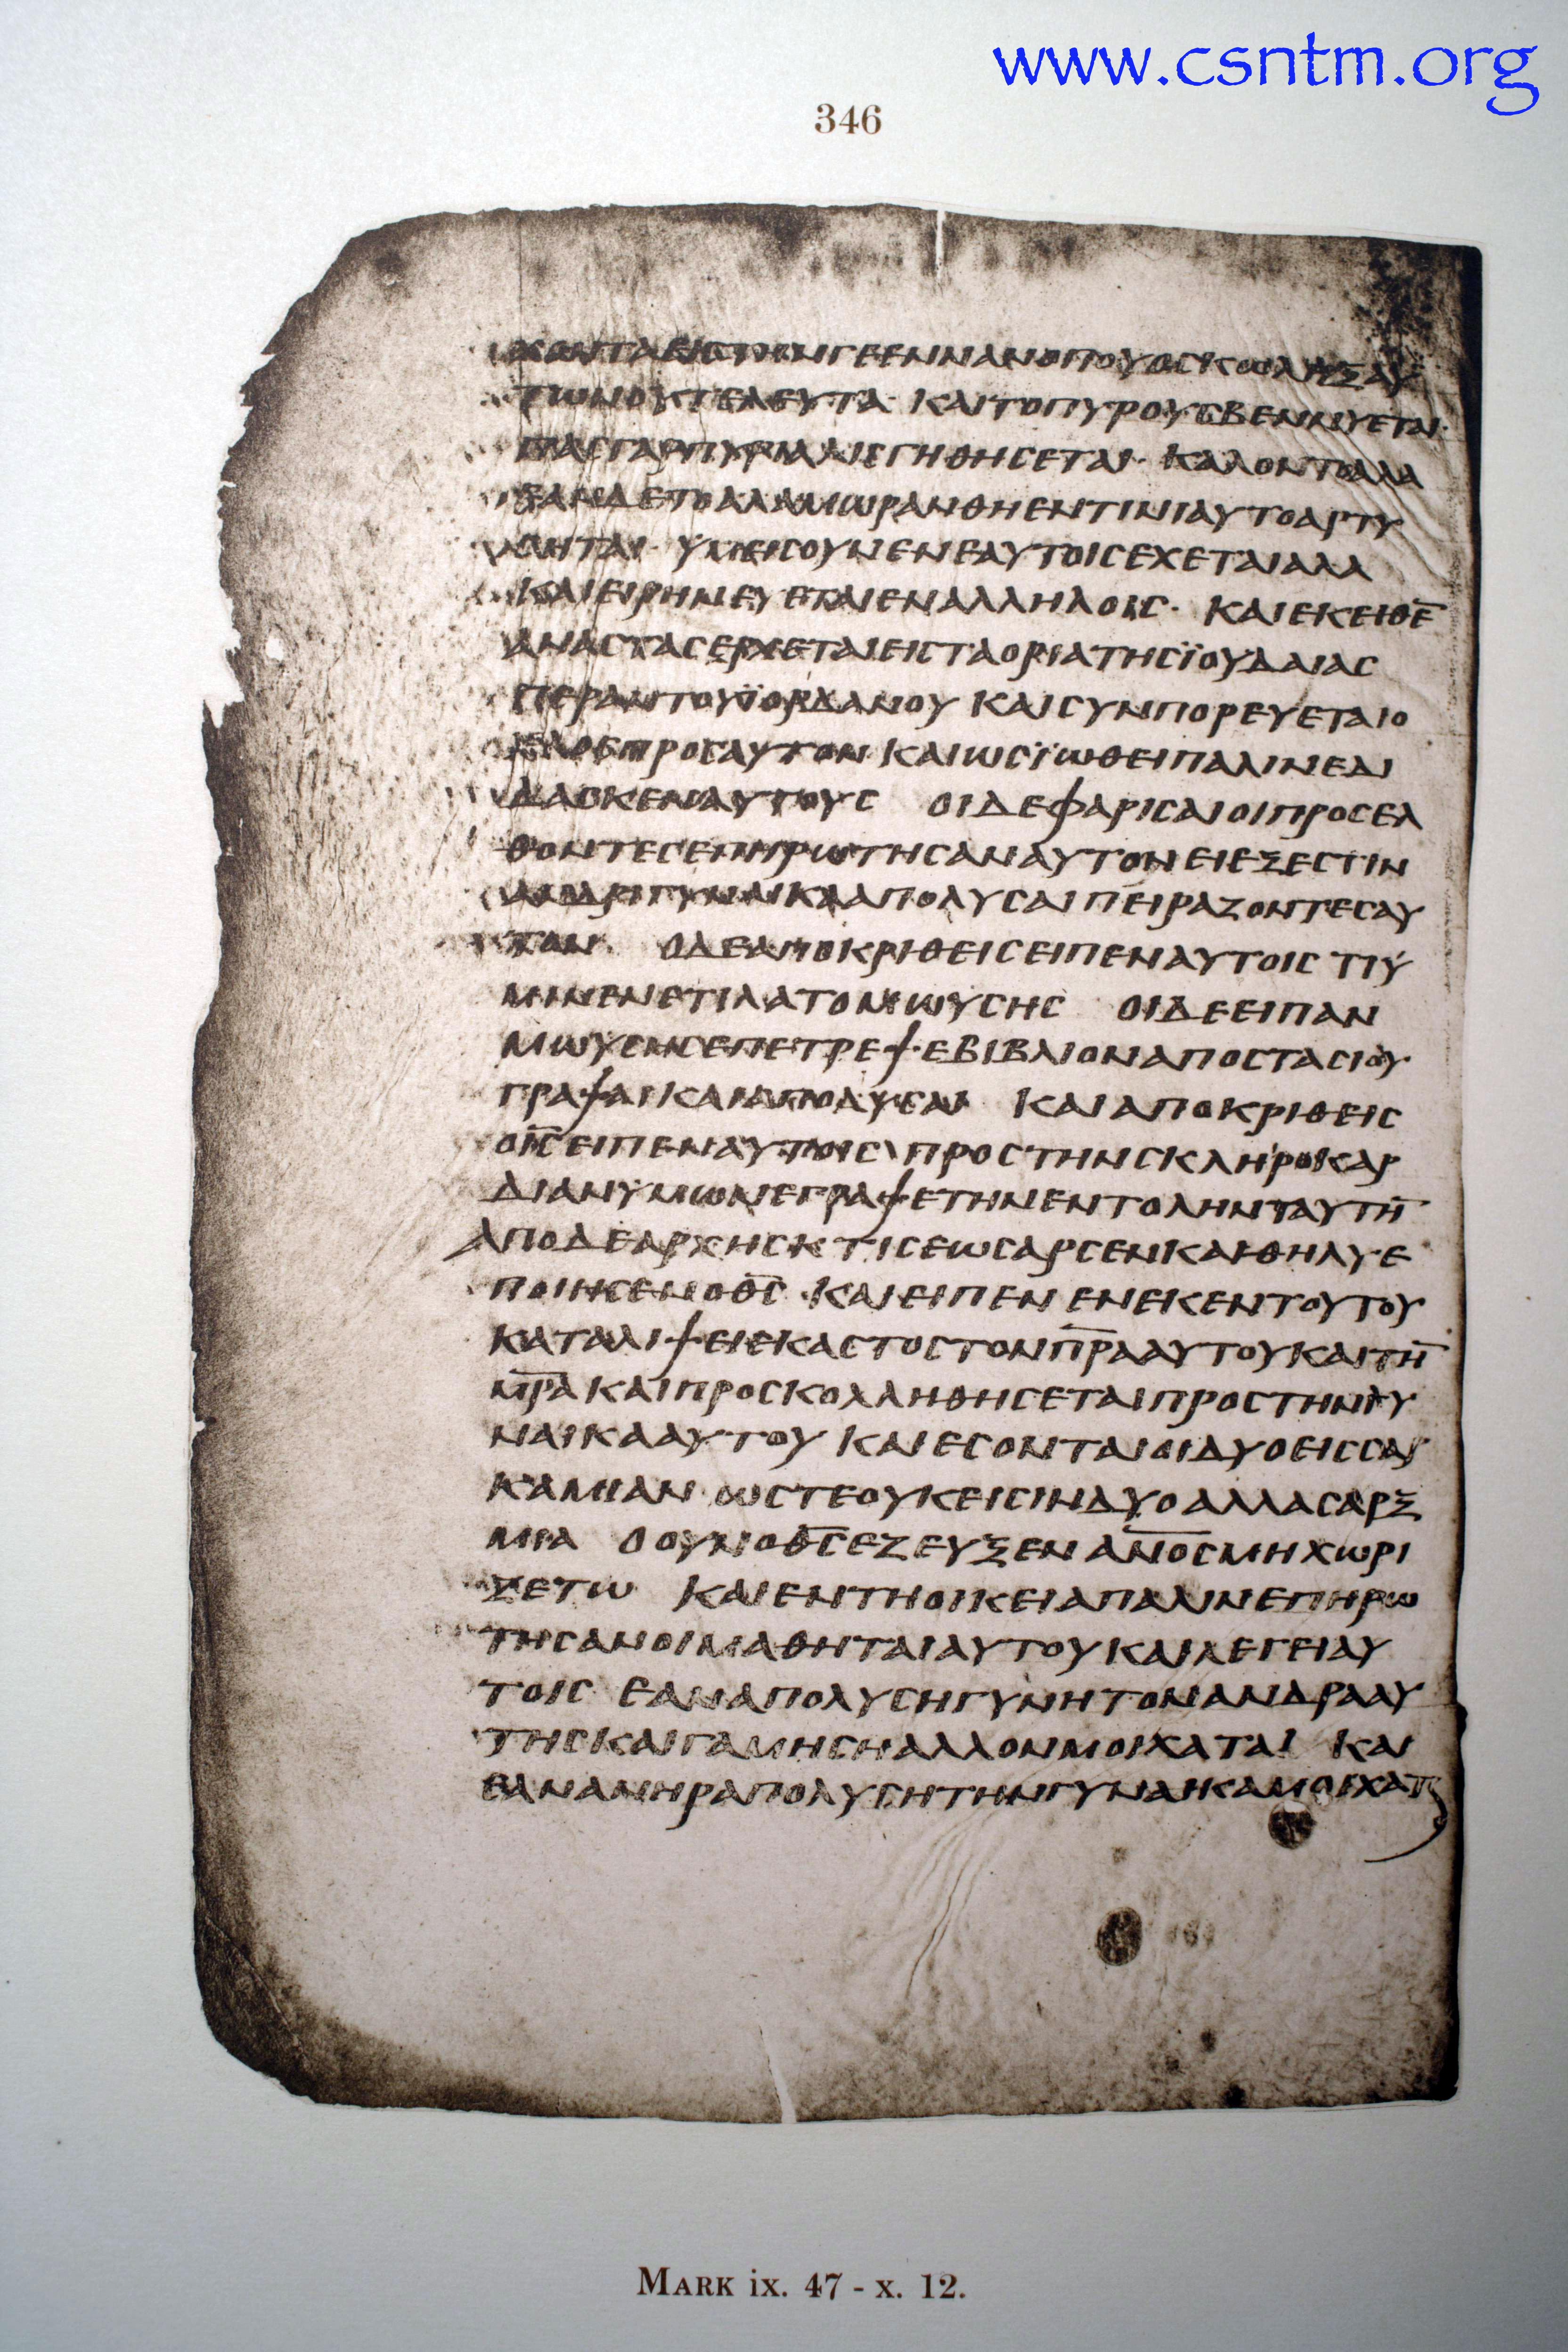 www.csntm.org
346
ΧΟΝΤΑΕΙCΤΗΝΓΕΕΝΝΑΝΟΠΟΥΟCΚΩΛΗΞΑΥ
ΤΩΝΟΥΤΕΛΕΥΤΑ· ΚΑΙΤΟΠΥΡΟΥCΒΕΝΝΥΕΤΑΙ·
ΠΑCΓΑΡΠΥΡΙΑΛΙCΓΗΘΗCΕΤΑΙ· ΚΑΛΟΝΤΟΑΛΑ
ΕΑΝΔΕΤΟΑΛΑΜΩΡΑΝΘΗΕΝΤΙΝΙΑΥΤΟΑΡΤΥ
CΗΤΑΙ· ΥΜΕΙCΟΥΝΕΝΕΑΥΤΟΙCΕΧΕΤΑΙΑΛΑ
ΚΑΙΕΙΡΗΝΕΥΕΤΑΙΕΝΑΛΛΗΛΟΙC· ΚΑΙΕΚΕΙΘΕ̅
ΑΝΑCΤΑCΕΡΧΕΤΑΙΕΙCΤΑΟΡΙΑΤΗCΪΟΥΔΑΙΑC
ΠΕΡΑΝΤΟΥΪΟΡΔΑΝΟΥ ΚΑΙCΥΝΠΟΡΕΥΕΤΑΙΟ
ΧΛΟCΠΡΟCΑΥΤΟΝ ΚΑΙΩCΪΩΘΕΙΠΑΛΙΝΕΔΙ
ΔΑCΚΕΝΑΥΤΟΥC ΟΙΔΕΦΑΡΙCΑΙΟΙΠΡΟCΕΛ
ΘΟΝΤΕCΕΠΗΡΩΤΗCΑΝΑΥΤΟΝΕΙΕΞΕCΤΙΝ
ΑΝΔΡΙΓΥΝΑΙΚΑΑΠΟΛΥCΑΙΠΕΙΡΑΖΟΝΤΕCΑΥ
ΤΟΝ ΟΔΕΑΠΟΚΡΙΘΕΙCΕΙΠΕΝΑΥΤΟΙC ΤΙΥ
ΜΙΝΕΝΕΤΙΛΑΤΟΜΩΥCΗC ΟΙΔΕΕΙΠΑΝ
ΜΩΥCΗCΕΠΕΤΡΕΨΕΒΙΒΛΙΟΝΑΠΟCΤΑCΙΟΥ
ΓΡΑΨΑΙΚΑΙΑΠΟΛΥCΑΙ ΚΑΙΑΠΟΚΡΙΘΕΙC
ΟΙ̅C̅ΕΙΠΕΝΑΥΤΟΙC ΠΡΟCΤΗΝCΚΛΗΡΟΚΑΡ
ΔΙΑΝΥΜΩΝΕΓΡΑΨΕΤΗΝΕΝΤΟΛΗΝΤΑΥΤΗ̅
ΑΠΟΔΕΑΡΧΗCΚΤΙCΕΩCΑΡCΕΝΚΑΙΘΗΛΥ·Ε
ΠΟΙΗCΕΝΟΘ̅C̅· ΚΑΙΕΙΠΕΝ ΕΝΕΚΕΝΤΟΥΤΟΥ
ΚΑΤΑΛΙΨΕΙΕΚΑCΤΟCΤΟΝΠ̅Ρ̅Α̅ΑΥΤΟΥΚΑΙΤΗ̅
Μ̅Ρ̅Α̅ ΚΑΙΠΡΟCΚΟΛΛΗΘΗCΕΤΑΙΠΡΟCΤΗΝΓΥ
ΝΑΙΚΑΑΥΤΟΥ ΚΑΙΕCΟΝΤΑΙΟΙΔΥΟΕΙCCΑΡ
ΚΑΜΙΑΝ· ΩCΤΕΟΥΚΕΙCΙΝΔΥΟΑΛΛΑCΑΡΞ
ΜΙΑ ΟΟΥΝΟΘ̅C̅ΕΖΕΥΞΕΝΑ̅Ν̅Ο̅C̅ΜΗΧΩΡΙ
ΖΕΤΩ ΚΑΙΕΝΤΗΟΙΚΕΙΑΠΑΛΙΝΕΠΗΡΩ
ΤΗCΑΝΟΙΜΑΘΗΤΑΙΑΥΤΟΥΚΑΙΛΕΓΕΙΑΥ
ΤΟΙC ΕΑΝΑΠΟΛΥCΗΓΥΝΗΤΟΝΑΝΔΡΑΑΥ
ΤΗCΚΑΙΓΑΜΗCΗΑΛΛΟΝΜΟΙΧΑΤΑΙ ΚΑΙ
ΕΑΝΑΝΗΡΑΠΟΛΥCΗΤΗΝΓΥΝΑΙΚΑΜΟΙΧΑΤΑΙ
MARK ix. 47 - x. 12.